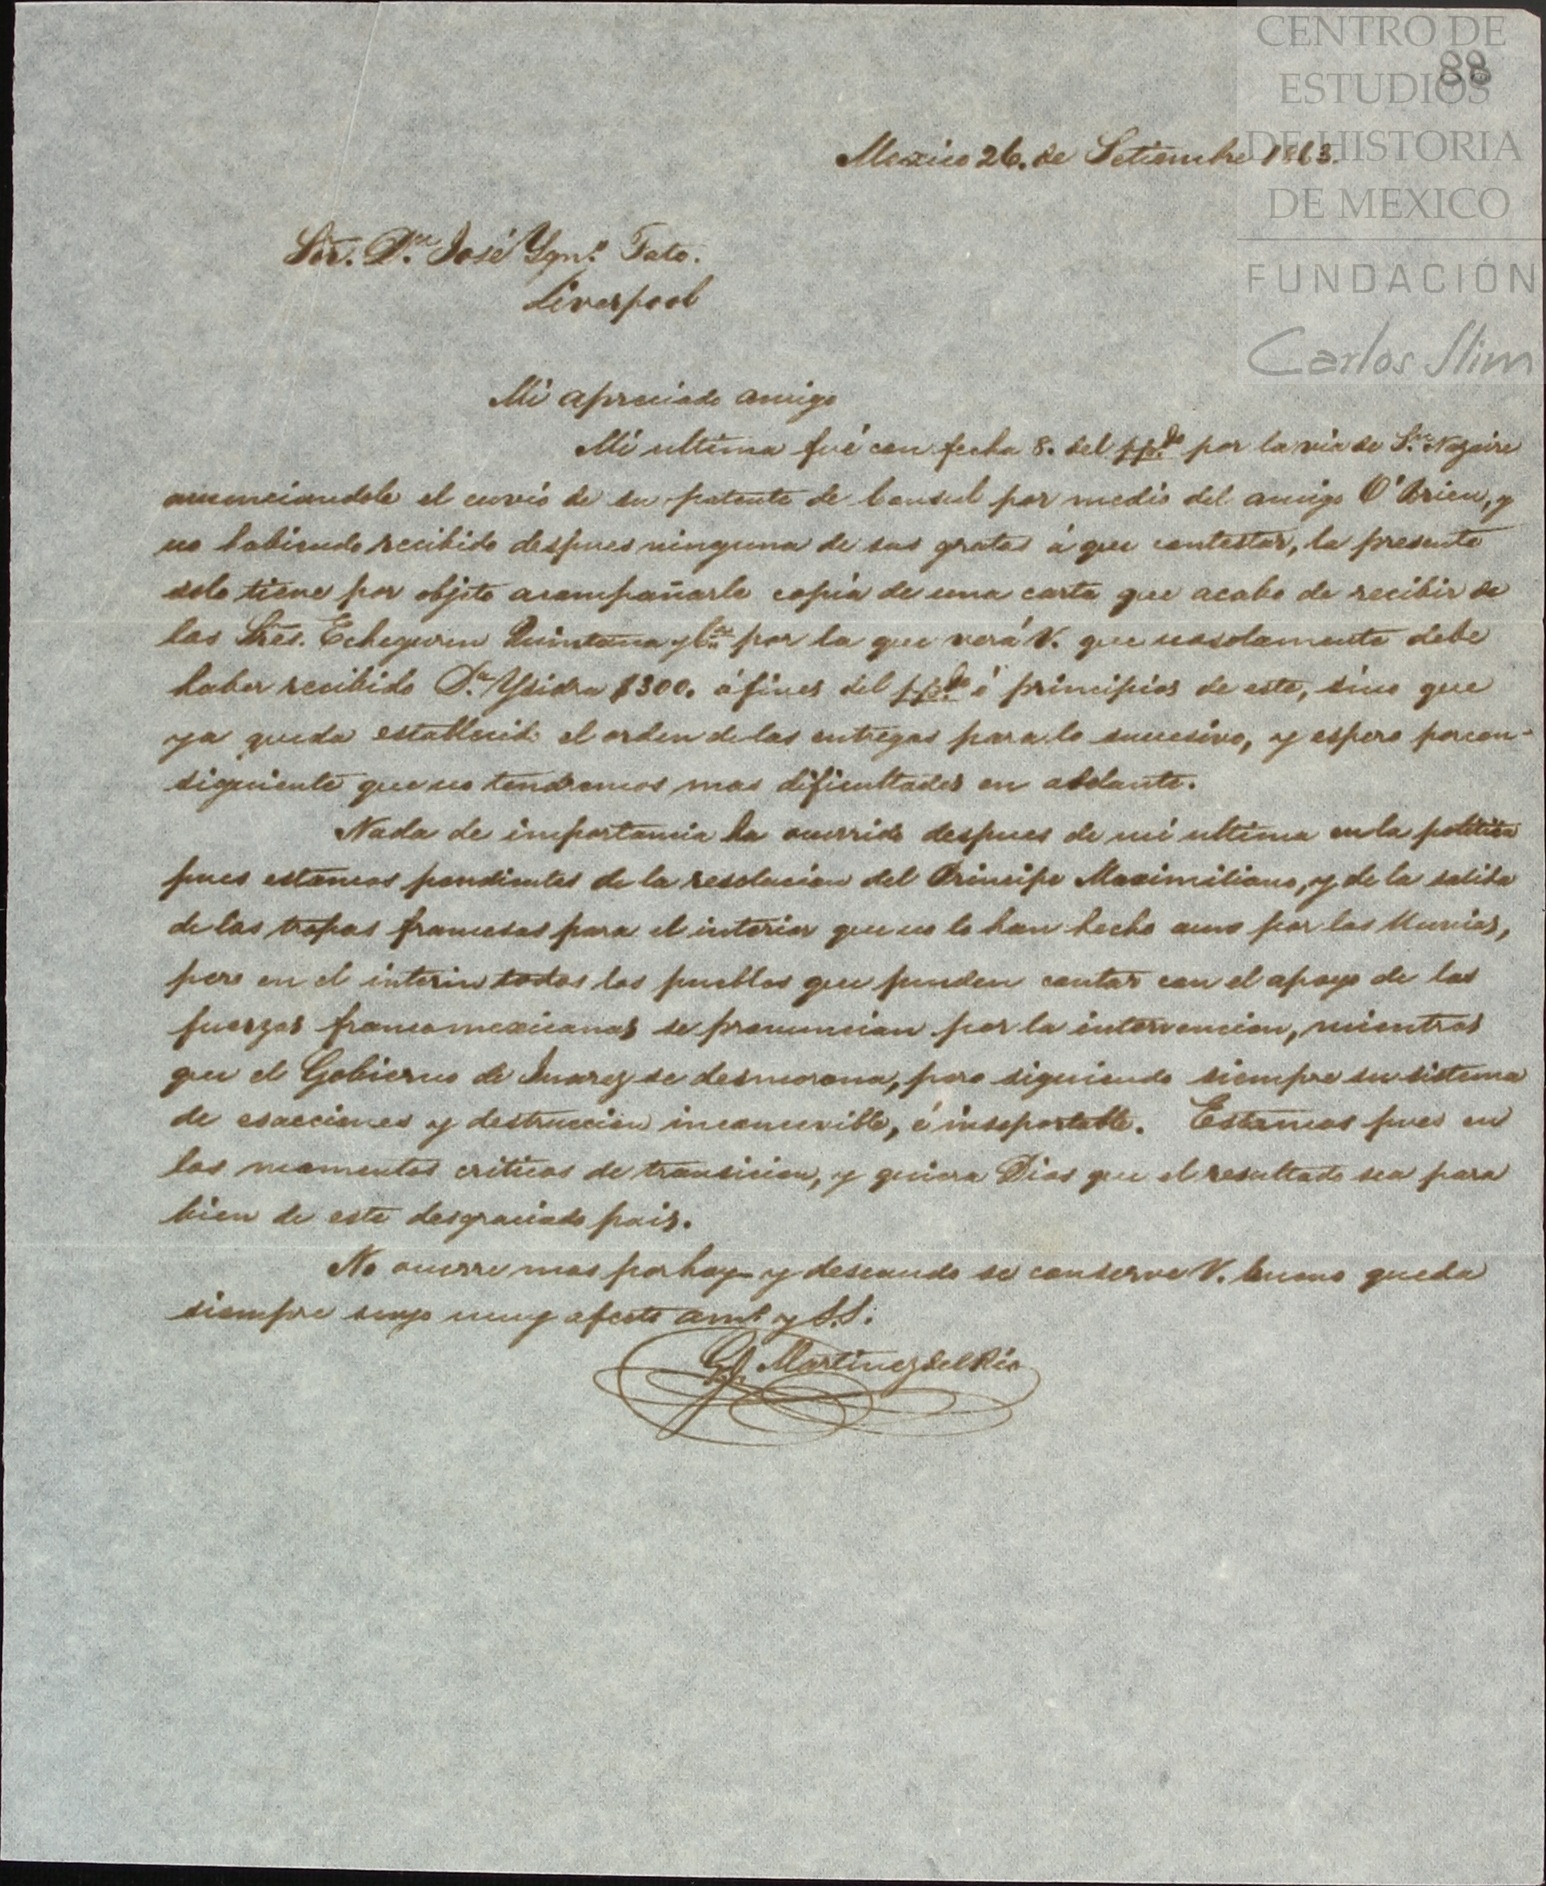 CENTRO DE
ESTUDIOS
DE HISTORIA
DE MEXICO
FUNDACIÓN
Carlos Slim
88
Mexico 26. de Setiembre 1863.
Sor. Dn. José Ygno. Fato.
Liverpool
Mi apreciado amigo
Mi ultima fué con fecha 8. del ppdo por la via de St. Nazaire
anunciandole el envio de su patente de Consul por medio del amigo O'Brien, y
no habiendo recibido despues ninguna de sus gratas á que contestar, la presente
solo tiene por objeto acompañarle copia de una carta que acabo de recibir de
los Sres. Echeguren Quintana y Ca. por la que verá V. que no solamente debe
haber recibido Da. Ysidra $300. á fines del ppdo ó principios de este, sino que
ya queda establecido el orden de las entregas para lo sucesivo, y espero por con-
siguiente que no tendremos mas dificultades en adelante.
Nada de importancia ha ocurrido despues de mi ultima en la politica
pues estamos pendientes de la resolucion del Principe Maximiliano, y de la salida
de las tropas francesas para el interior que no lo han hecho aun por las lluvias,
pero en el interin todos los pueblos que pueden contar con el apoyo de las
fuerzas francomexicanas se pronuncian por la intervencion, mientras
que el Gobierno de Juarez se desmorona, pero siguiendo siempre su sistema
de esacciones y destruccion inconcevible, é insoportable. Estamos pues en
los momentos criticos de transicion, y quiera Dios que el resultado sea para
bien de este desgraciado pais.
No ocurre mas por hoy y deseando se conserve V. bueno queda
siempre suyo muy afecto amo. y S.S.
Martinez del Rio